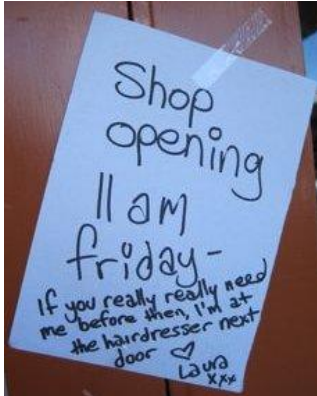 Shop
opening
11 am
friday-
If you really really need
me before then, I'm at
the hairdresser next
door ♡
Laura
xxx